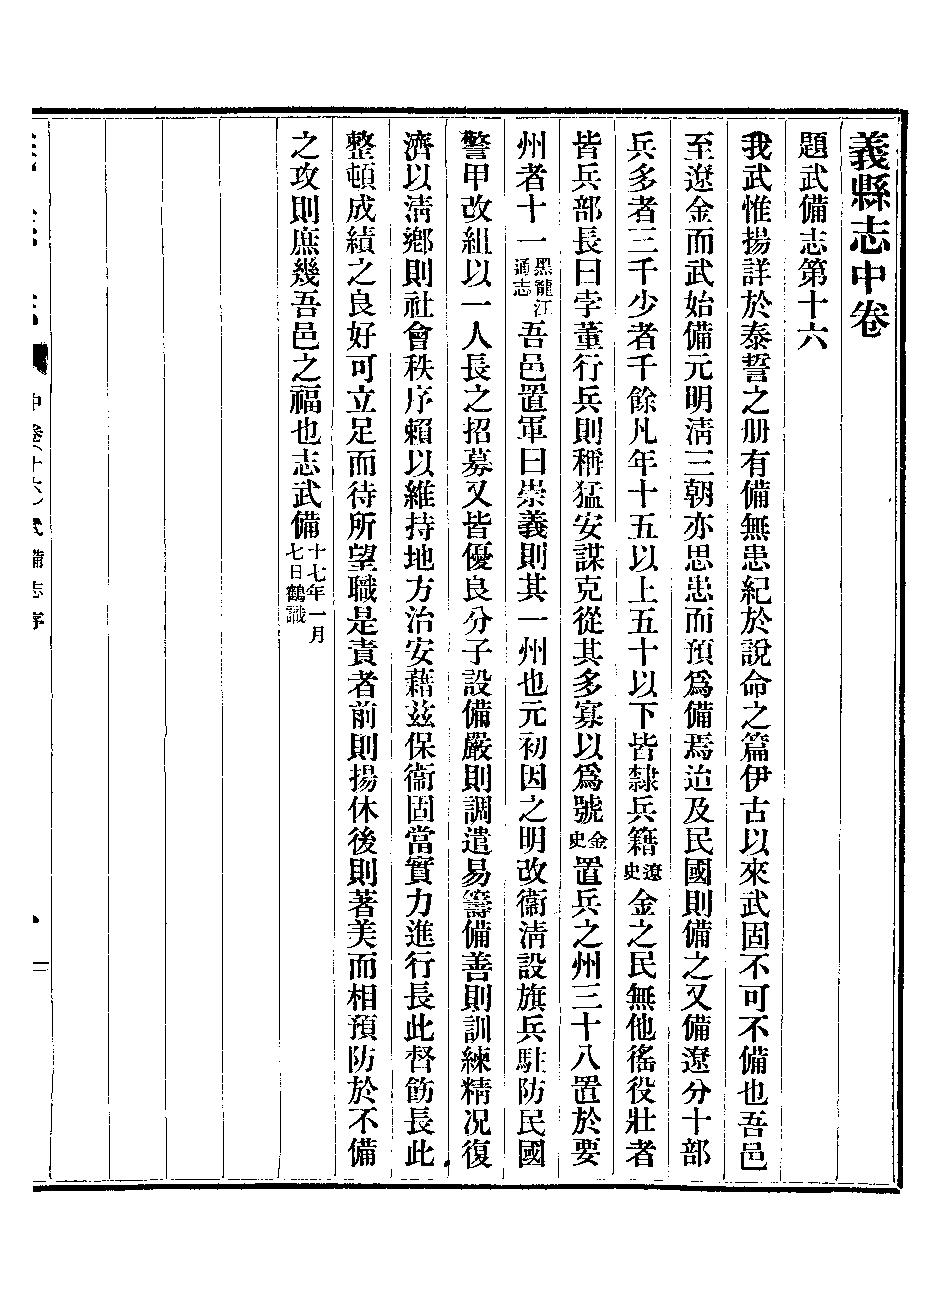 義縣志中卷
題武備志第十六
我武惟揚詳於泰誓之册有備無患紀於說命之篇伊古以來武固不可不備也吾邑
至遼金而武始備元明淸三朝亦思患而預爲備焉迨及民國則備之又備遼分十部
兵多者三千少者千餘凡年十五以上五十以下皆隸兵籍遼史金之民無他徭役壯者
皆兵部長曰孛菫行兵則稱猛安謀克從其多寡以爲號金史置兵之州三十八置於要
州者十一黑龍江通志吾邑置軍曰崇義則其一州也元初因之明改衞淸設旗兵駐防民國
警甲改組以一人長之招募又皆優良分子設備嚴則調遣易籌備善則訓練精况復
濟以淸鄉則社會秩序賴以維持地方治安藉玆保衞固當實力進行長此督筋長此
整頓成績之良好可立足而待所望職是責者前則揚休後則著美而相預防於不備
之攻則庶幾吾邑之福也志武備十七年一月七日鶴識
中卷(十六)武備志序